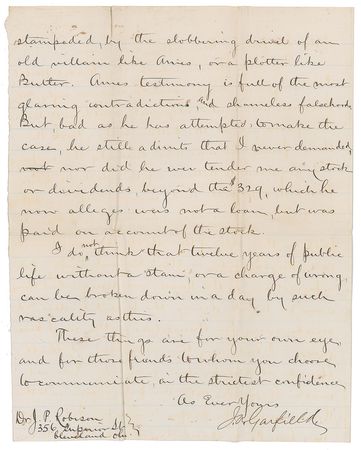 stampeded, by the slobbering drivel of an
old villain like Ames, or a plotter like
Butler. Ames testimony is full of the most
glaring contradictions and shameless falsehoods
But, bad as he has attempted to make the
case, he still admits that I never demanded,
nor did he ever tender me any stock
or dividends, beyond the $329, which he
now alleges was not a loan, but was
paid on account of the stock.
I do not think that twelve years of public
life without a stain, or a charge of wrong,
can be broken down in a day by such
rascality as this.
These things are for your own eye
and for those friends to whom you choose
to communicate, in the strictest confidence
As Ever Yours
J A Garfield
Dr J. P. Robison
356 Superior St
Cleveland